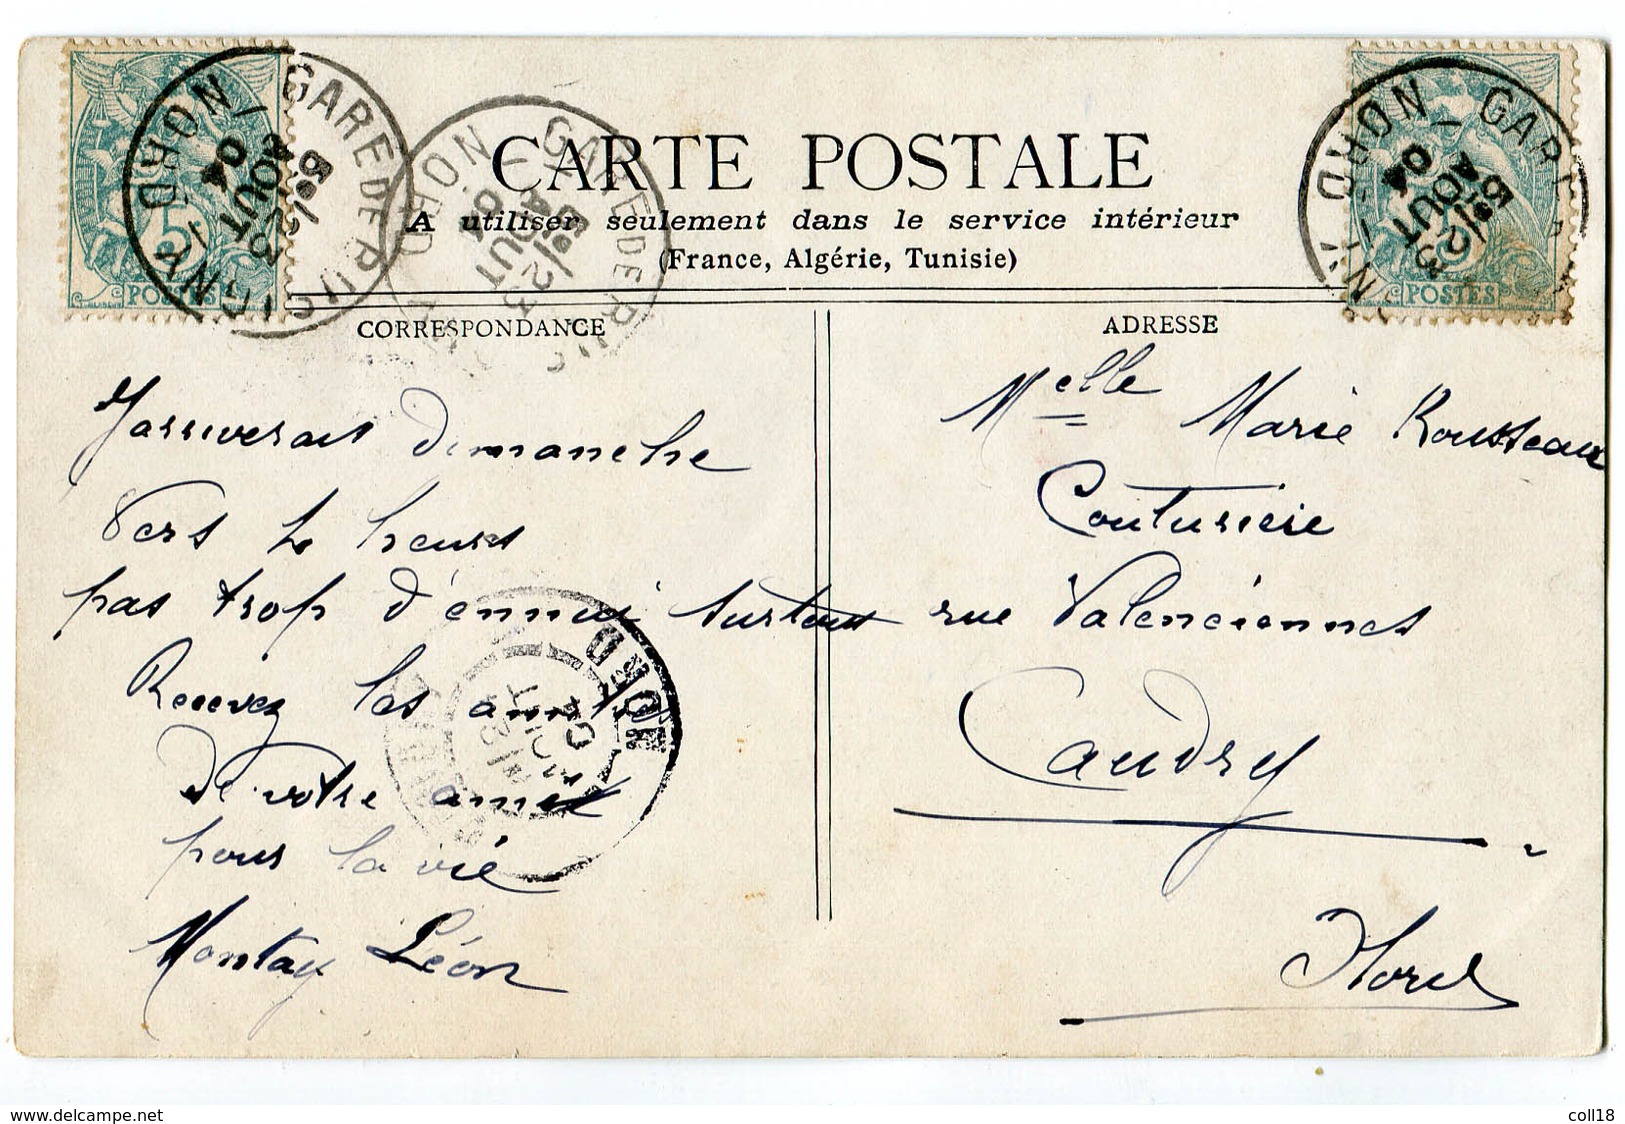 CARTE POSTALE
A utiliser seulement dans le service intérieur
(France, Algérie, Tunisie)
CORRESPONDANCE
J'arriverais dimanche
vers 4 heures
pas trop d'ennui surtout
Recevez les amitiés
de votre ami
pour la vie
Montay Léon
ADRESSE
Melle Marie Rousseau
Couturière
rue Valenciennes
Caudry
Nord
GARE DE RUE
5
POSTES
GARE
5
POSTES
NORD
www.delcampe.net
coll18